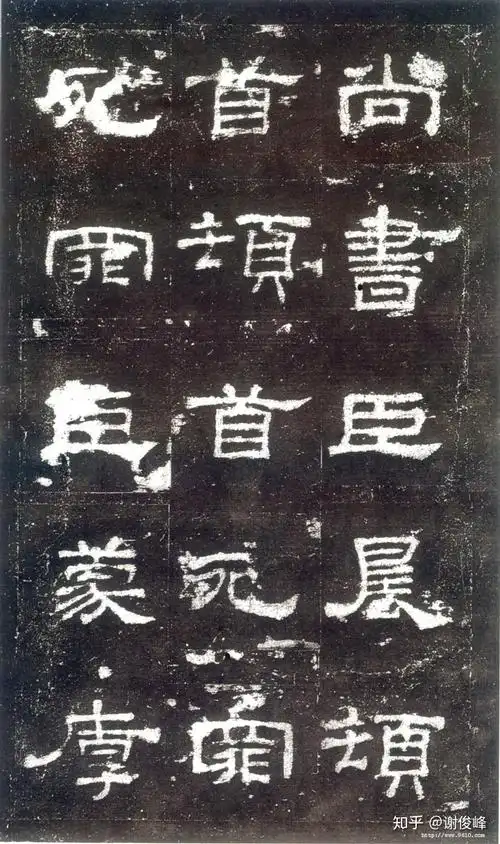 尚書臣晨頓
首頓首死罪
死罪臣蒙厚
知乎 @谢俊峰
http://www.9610.com